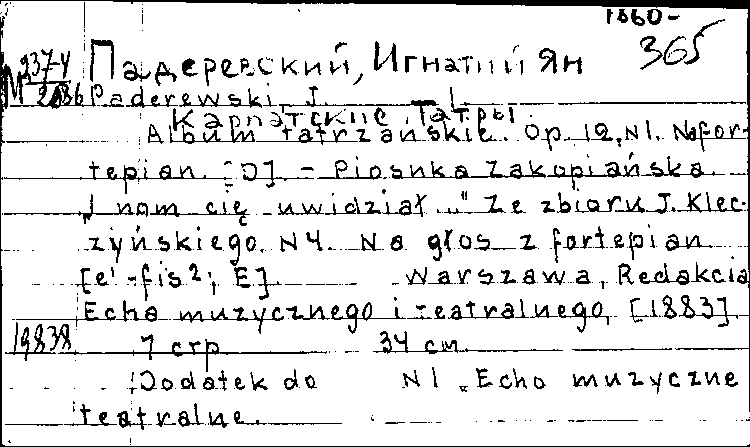 1860-
М 237-У Падеревский, Игнатий Ян 365
2836 Paderewski, J.
Карпатские Татры
Album tatrzańskie. Op. 12, N1. Na for-
tepian. [D]. - Piosnka Zakopiańska
„I nom cię uwidział..." Ze zbioru J. Klec-
zyńskiego. N4. Na głos z fortepian
[e¹-fis²; E] Warszawa, Redakcia
Echa muzycznego i teatralnego, [1883].
19838 7 стр 34 см
Dodatek do N1 „Echo muzyczne
teatralne.